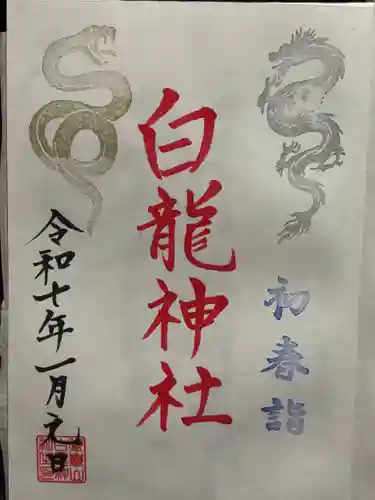 初春詣
白龍神社
令和十年一月元日